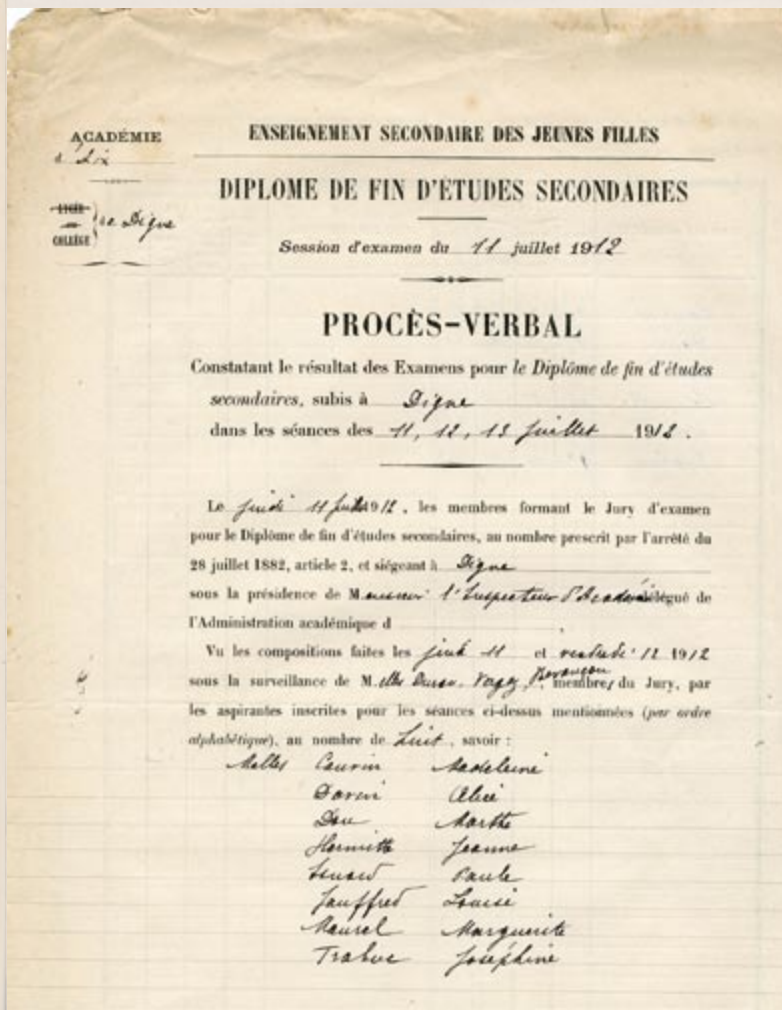 ACADÉMIE
d'Aix
LYCÉE
ou
COLLÈGE
de Digne
ENSEIGNEMENT SECONDAIRE DES JEUNES FILLES
DIPLOME DE FIN D'ÉTUDES SECONDAIRES
Session d'examen du 11 juillet 1912
PROCÈS-VERBAL
Constatant le résultat des Examens pour le Diplôme de fin d'études
secondaires, subis à Digne
dans les séances des 11, 12, 13 juillet 1912.
Le jeudi 11 juillet 1912, les membres formant le Jury d'examen
pour le Diplôme de fin d'études secondaires, au nombre prescrit par l'arrêté du
28 juillet 1882, article 2, et siégeant à Digne
sous la présidence de Monsieur l'Inspecteur d'Académie délégué de
l'Administration académique d
Vu les compositions faites les jeudi 11 et vendredi 12 1912
sous la surveillance de M.elles membres du Jury, par
les aspirantes inscrites pour les séances ci-dessus mentionnées (par ordre
alphabétique), au nombre de huit, savoir :
Melles Caurin Madeleine
Alice
Dou Marthe
Hermitte Jeanne
Isnard Paule
Jauffred Louise
Maurel Marguerite
Trabuc Joséphine